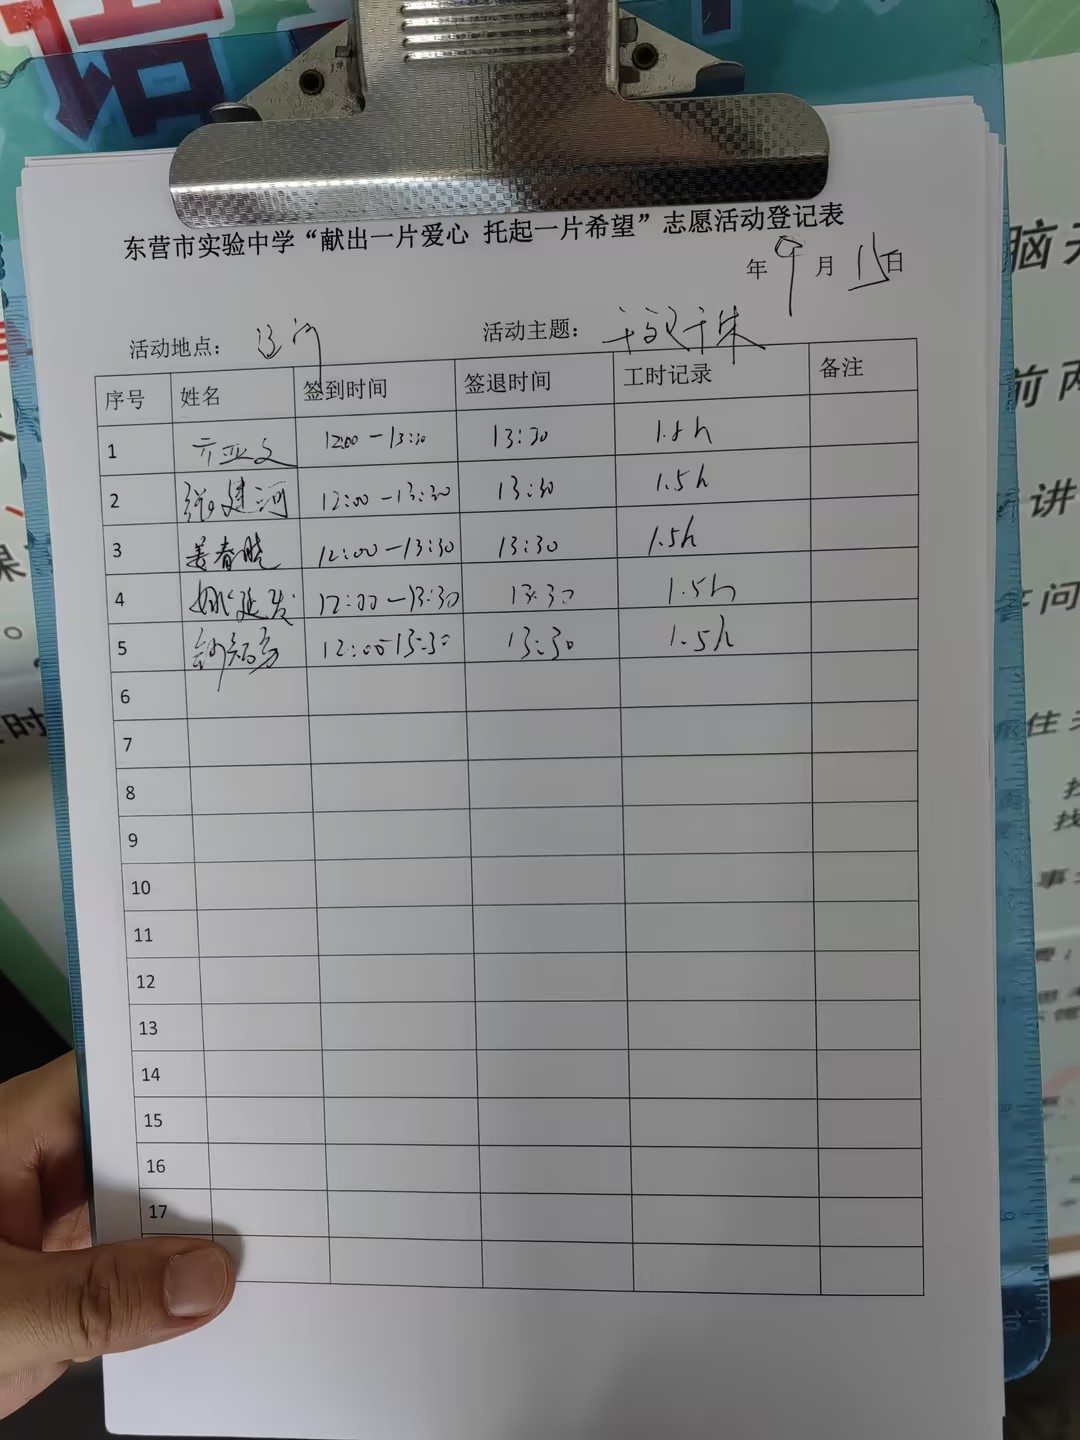 语
东营市实验中学“献出一片爱心 托起一片希望”志愿活动登记表
年 9 月 15日
活动地点：
活动主题：
序号 姓名 签到时间 签退时间 工时记录 备注
1 亓亚文 12:00-13:30 13:30 1.5h
2 张建河 12:00-13:30 13:30 1.5h
3 姜春晓 12:00-13:30 13:30 1.5h
4 姚延发 12:00-13:30 13:30 1.5h
5 12:00-13:30 13:30 1.5h
6
7
8
9
10
11
12
13
14
15
16
17
脑
前两
讲
问
住
找
事
时
果